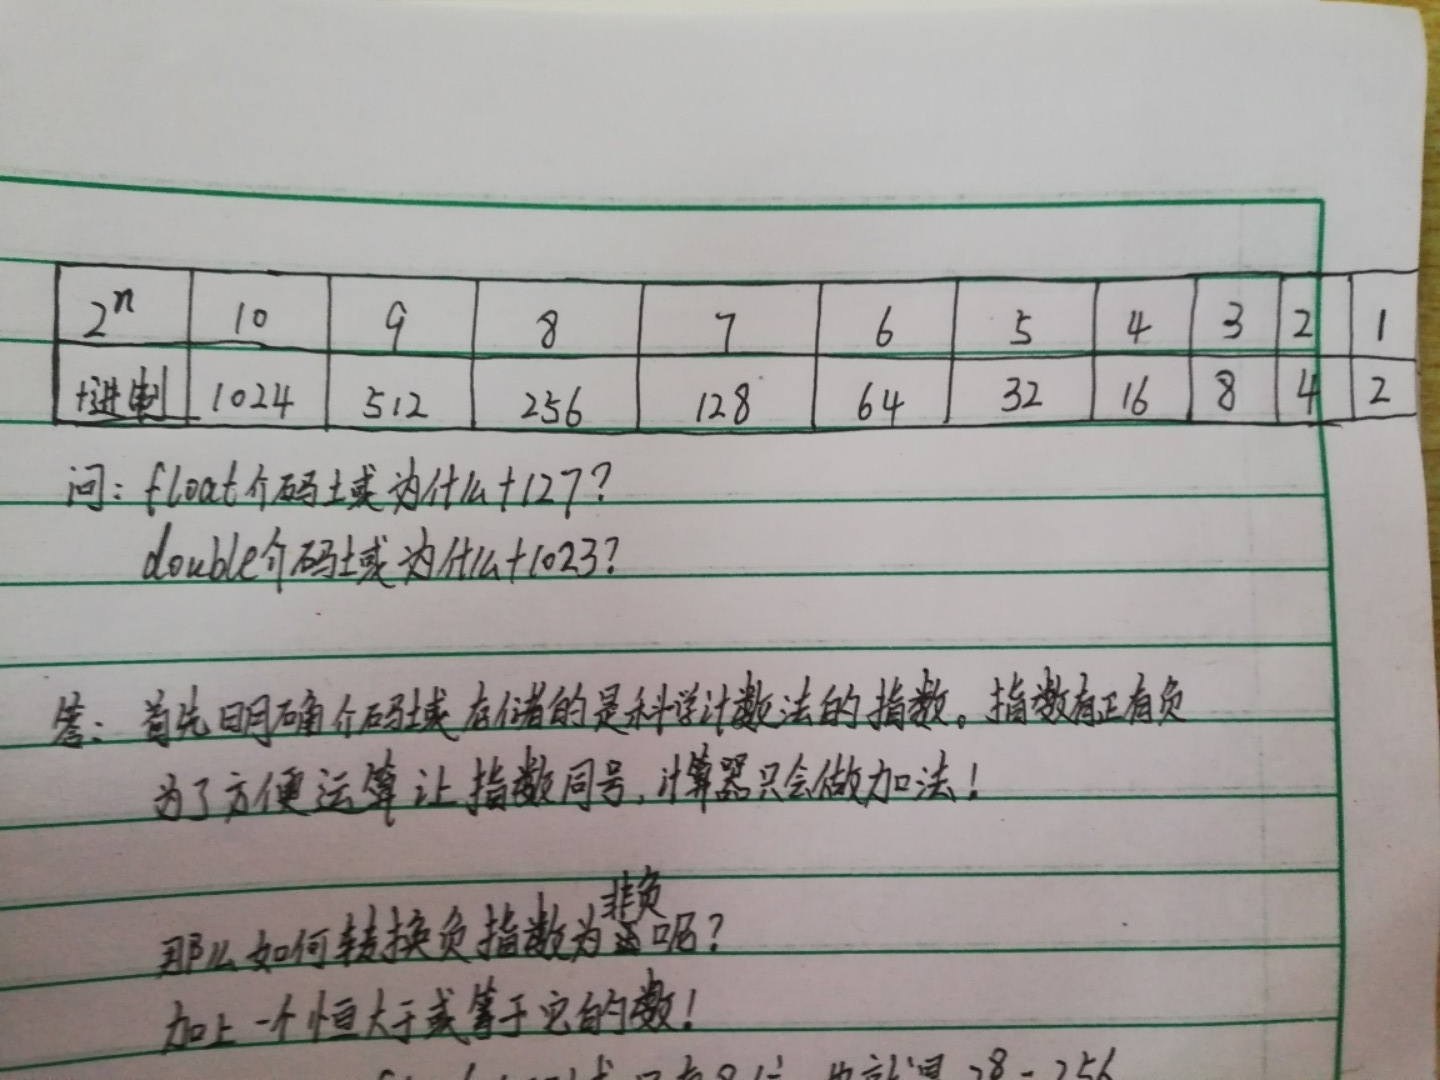 2ⁿ 10 9 8 7 6 5 4 3 2 1
十进制 1024 512 256 128 64 32 16 8 4 2
问: float介码域为什么+127?
double介码域为什么+1023?
答: 首先明确介码域存储的是科学计数法的指数。指数有正有负
为了方便运算让指数同号,计算器只会做加法!
非负
那么如何转换负指数为呢?
加上一个恒大于或等于它的数!
8位 也就是 2⁸=256